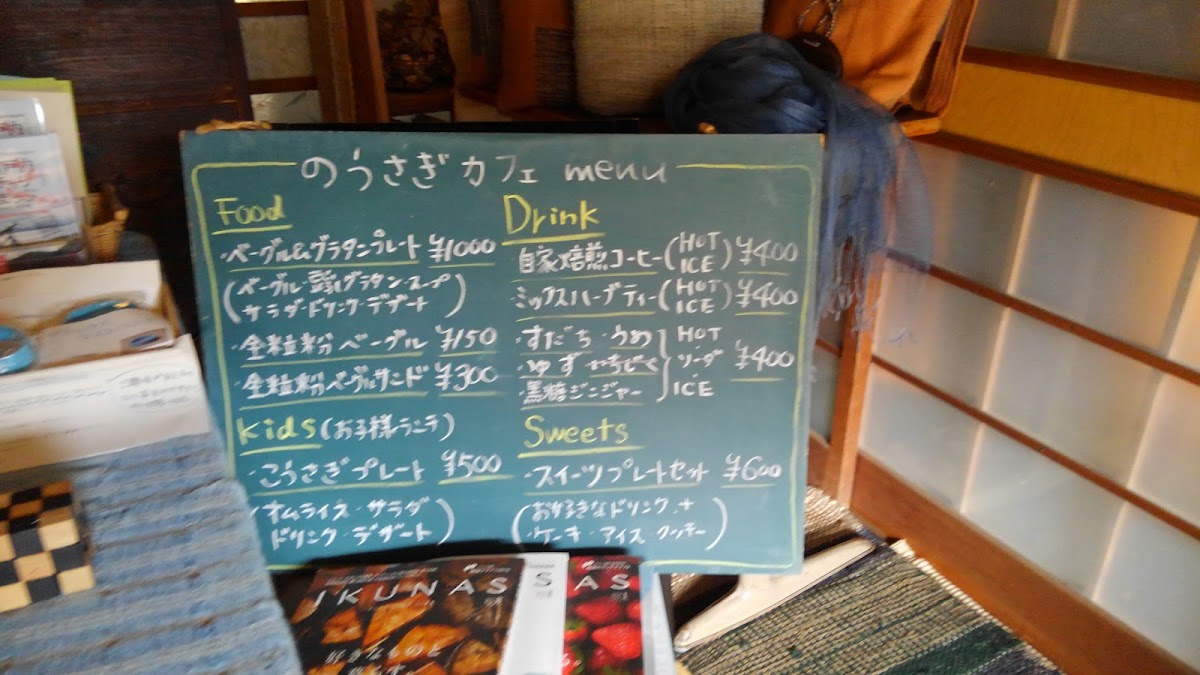 のうさぎカフェ menu
Food
・ベーグル&グラタンプレート ¥1000
(ベーグル・グラタン・スープ
サラダ・ドリンク・デザート)
・全粒粉ベーグル ¥150
・全粒粉ベーグルサンド ¥300
Kids (お子様ランチ)
・こうさぎプレート ¥500
(オムライス・サラダ
ドリンク・デザート)
Drink
・自家焙煎コーヒー (HOT ICE) ¥400
・ミックスハーブティー (HOT ICE) ¥400
・すだち・うめ
・ゆず
・黒糖ジンジャー
HOT
ソーダ
ICE
¥400
Sweets
・スイーツプレートセット ¥600
(お好きなドリンク +
・ケーキ・アイス クッキー)
IKUNAS
S
AS
好きなものと